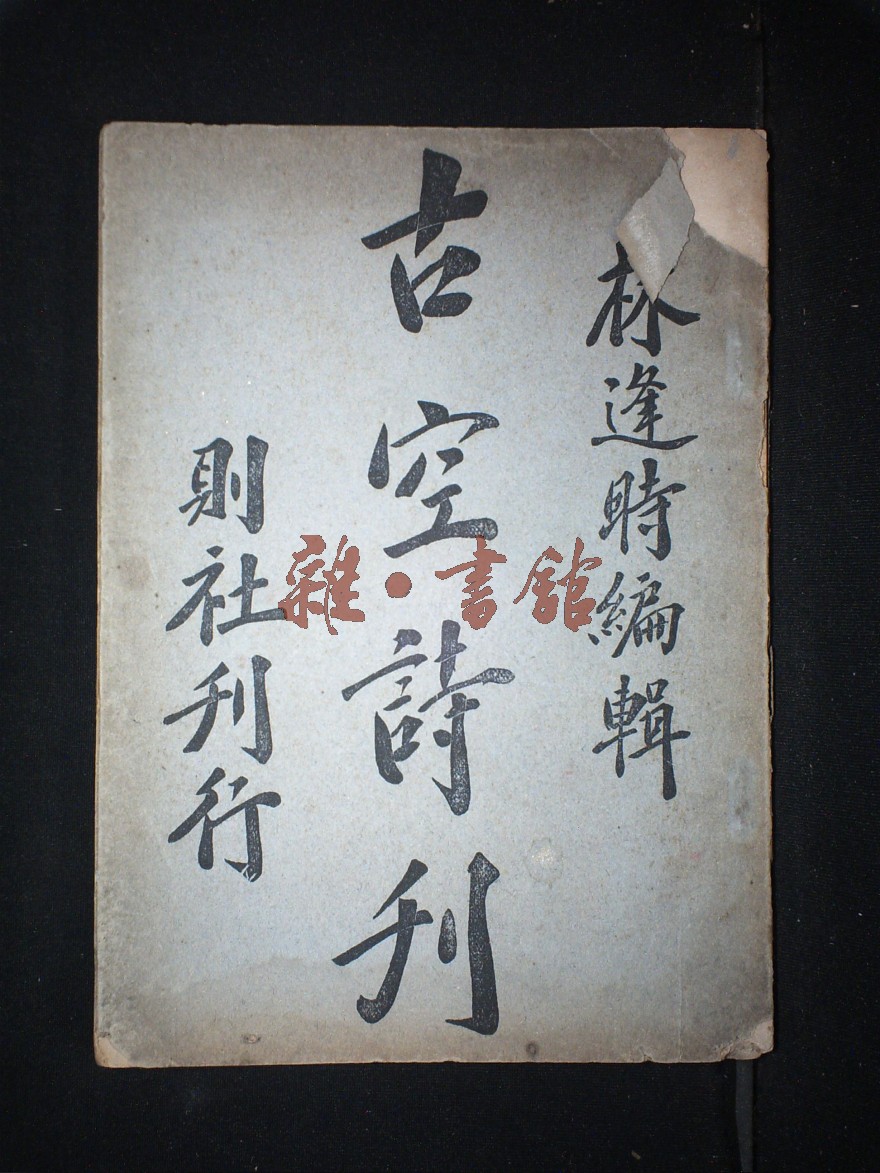 林逢時編輯
古空詩刊
則社刊行
雜·書館